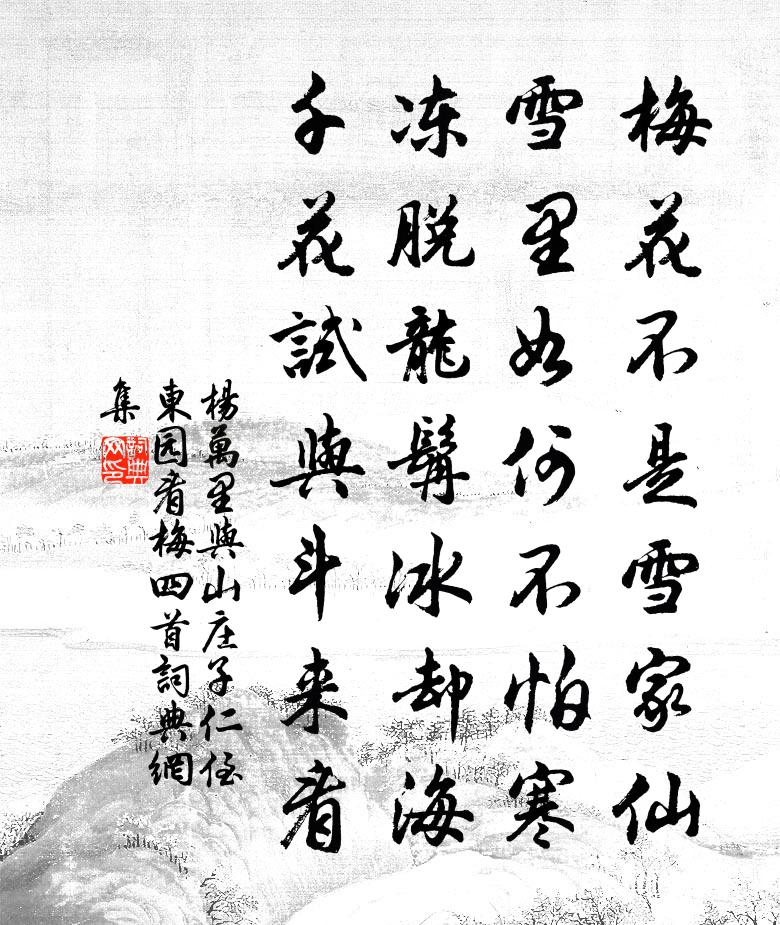 梅花不是雪家仙
雪里如何不怕寒
冻脱龍髯冰却海
千花試與斗来看
楊萬里與山庄子仁侄
東园看梅四首詞典網
集
詞典
网印